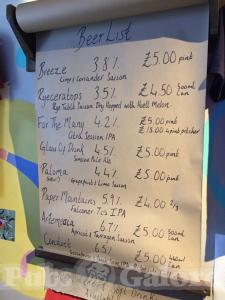 Beer List
Breeze 3.8% £5.00 pint
Lime & Coriander Saison
Ryeceratops 3.5% £4.50 500ml Can
Rye Table Saison Dry Hopped with Huell Melon
For The Many 4.2% £5.00 pint
Citra Session IPA £18.00 4 pint pitcher
Glass Of Pink 4.5% £5.00 pint
Session Pale Ale
Paloma 4.4% £5.00 pint
Grapefruit & Lime Saison
Paper Mountains 5.9% £4.00 2/3
Falconer 7cs IPA
Artemesia 6.% £5.00 500ml Can
Apricot & Tarragon Saison
Conduit 6.5%
Pubs Galore